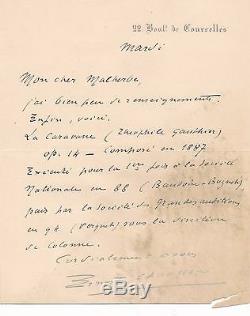 22 Boulᵈ de Courcelles
Mardi
Mon cher Malherbe,
j'ai bien peu de renseignements.
Enfin, voici.
La Caravane (Théophile Gauthier)
op. 14 – Composé en 1887
Exécuté pour la 1ère fois à la Société
Nationale en 88 (Baudouin-Bugnet)
puis par la Société des Grandes auditions
en 94 (Verguet) sous la direction
de Colonne.
Cordialement à vous